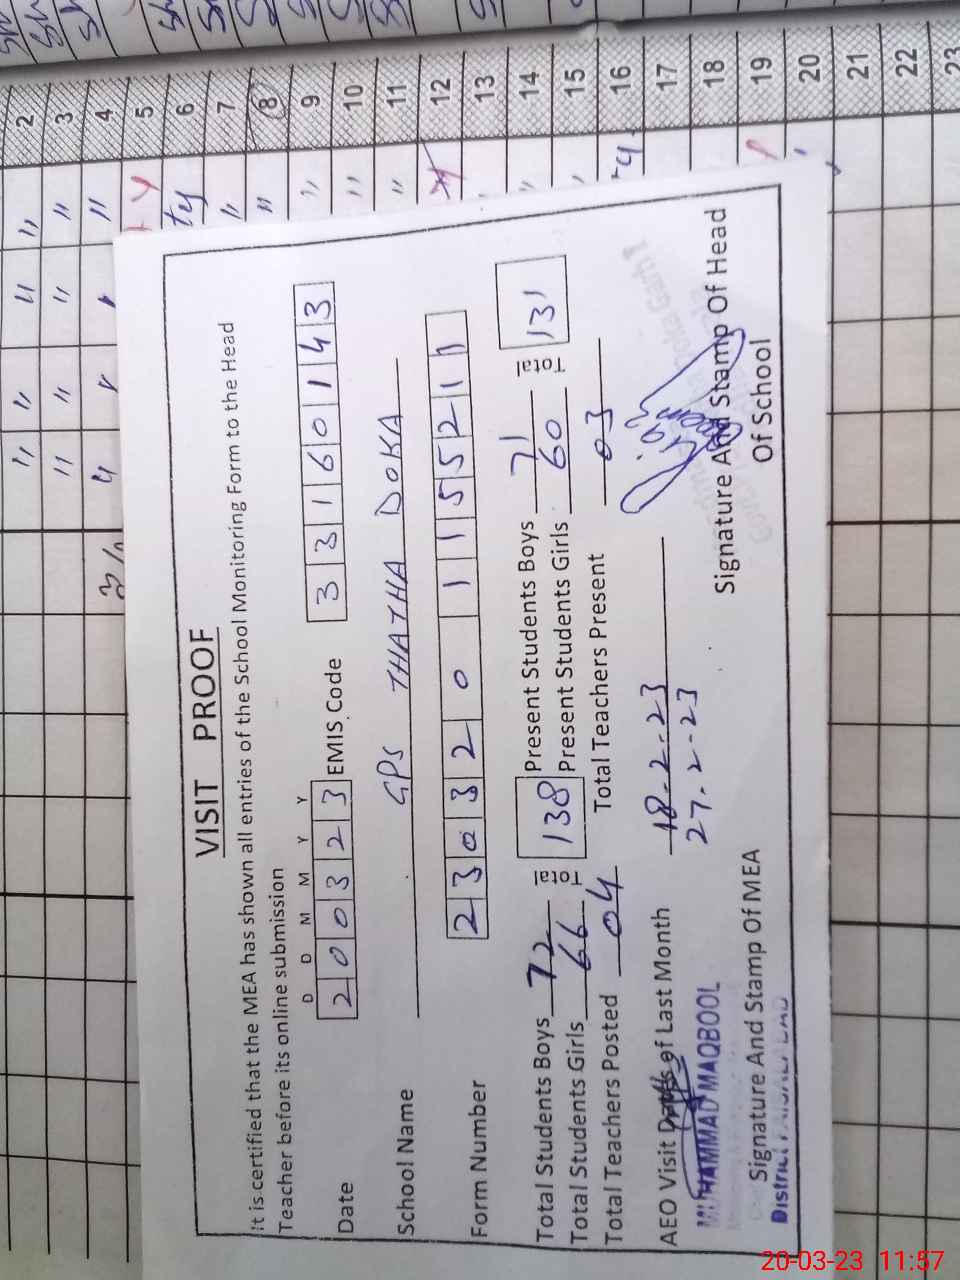 VISIT PROOF
It is certified that the MEA has shown all entries of the School Monitoring Form to the Head
Teacher before its online submission
D D M M Y Y
Date 200323 EMIS Code 33160143
School Name GPS THATHA DOKA
Form Number 230320 0 115521 1
Total Students Boys 72 Total 138 Present Students Boys 71 Total 131
Total Students Girls 66 Present Students Girls 60
Total Teachers Posted 04 Total Teachers Present 03
AEO Visit Dates of Last Month 18-2-23
27-2-23
MUHAMMAD MAQBOOL
Signature And Stamp Of MEA
District FAISALABAD
Signature And Stamp Of Head
Of School
2
3
4
5
6
7
8
9
10
11
12
13
14
15
16
17
18
19
20
21
22
23
20-03-23 11:57